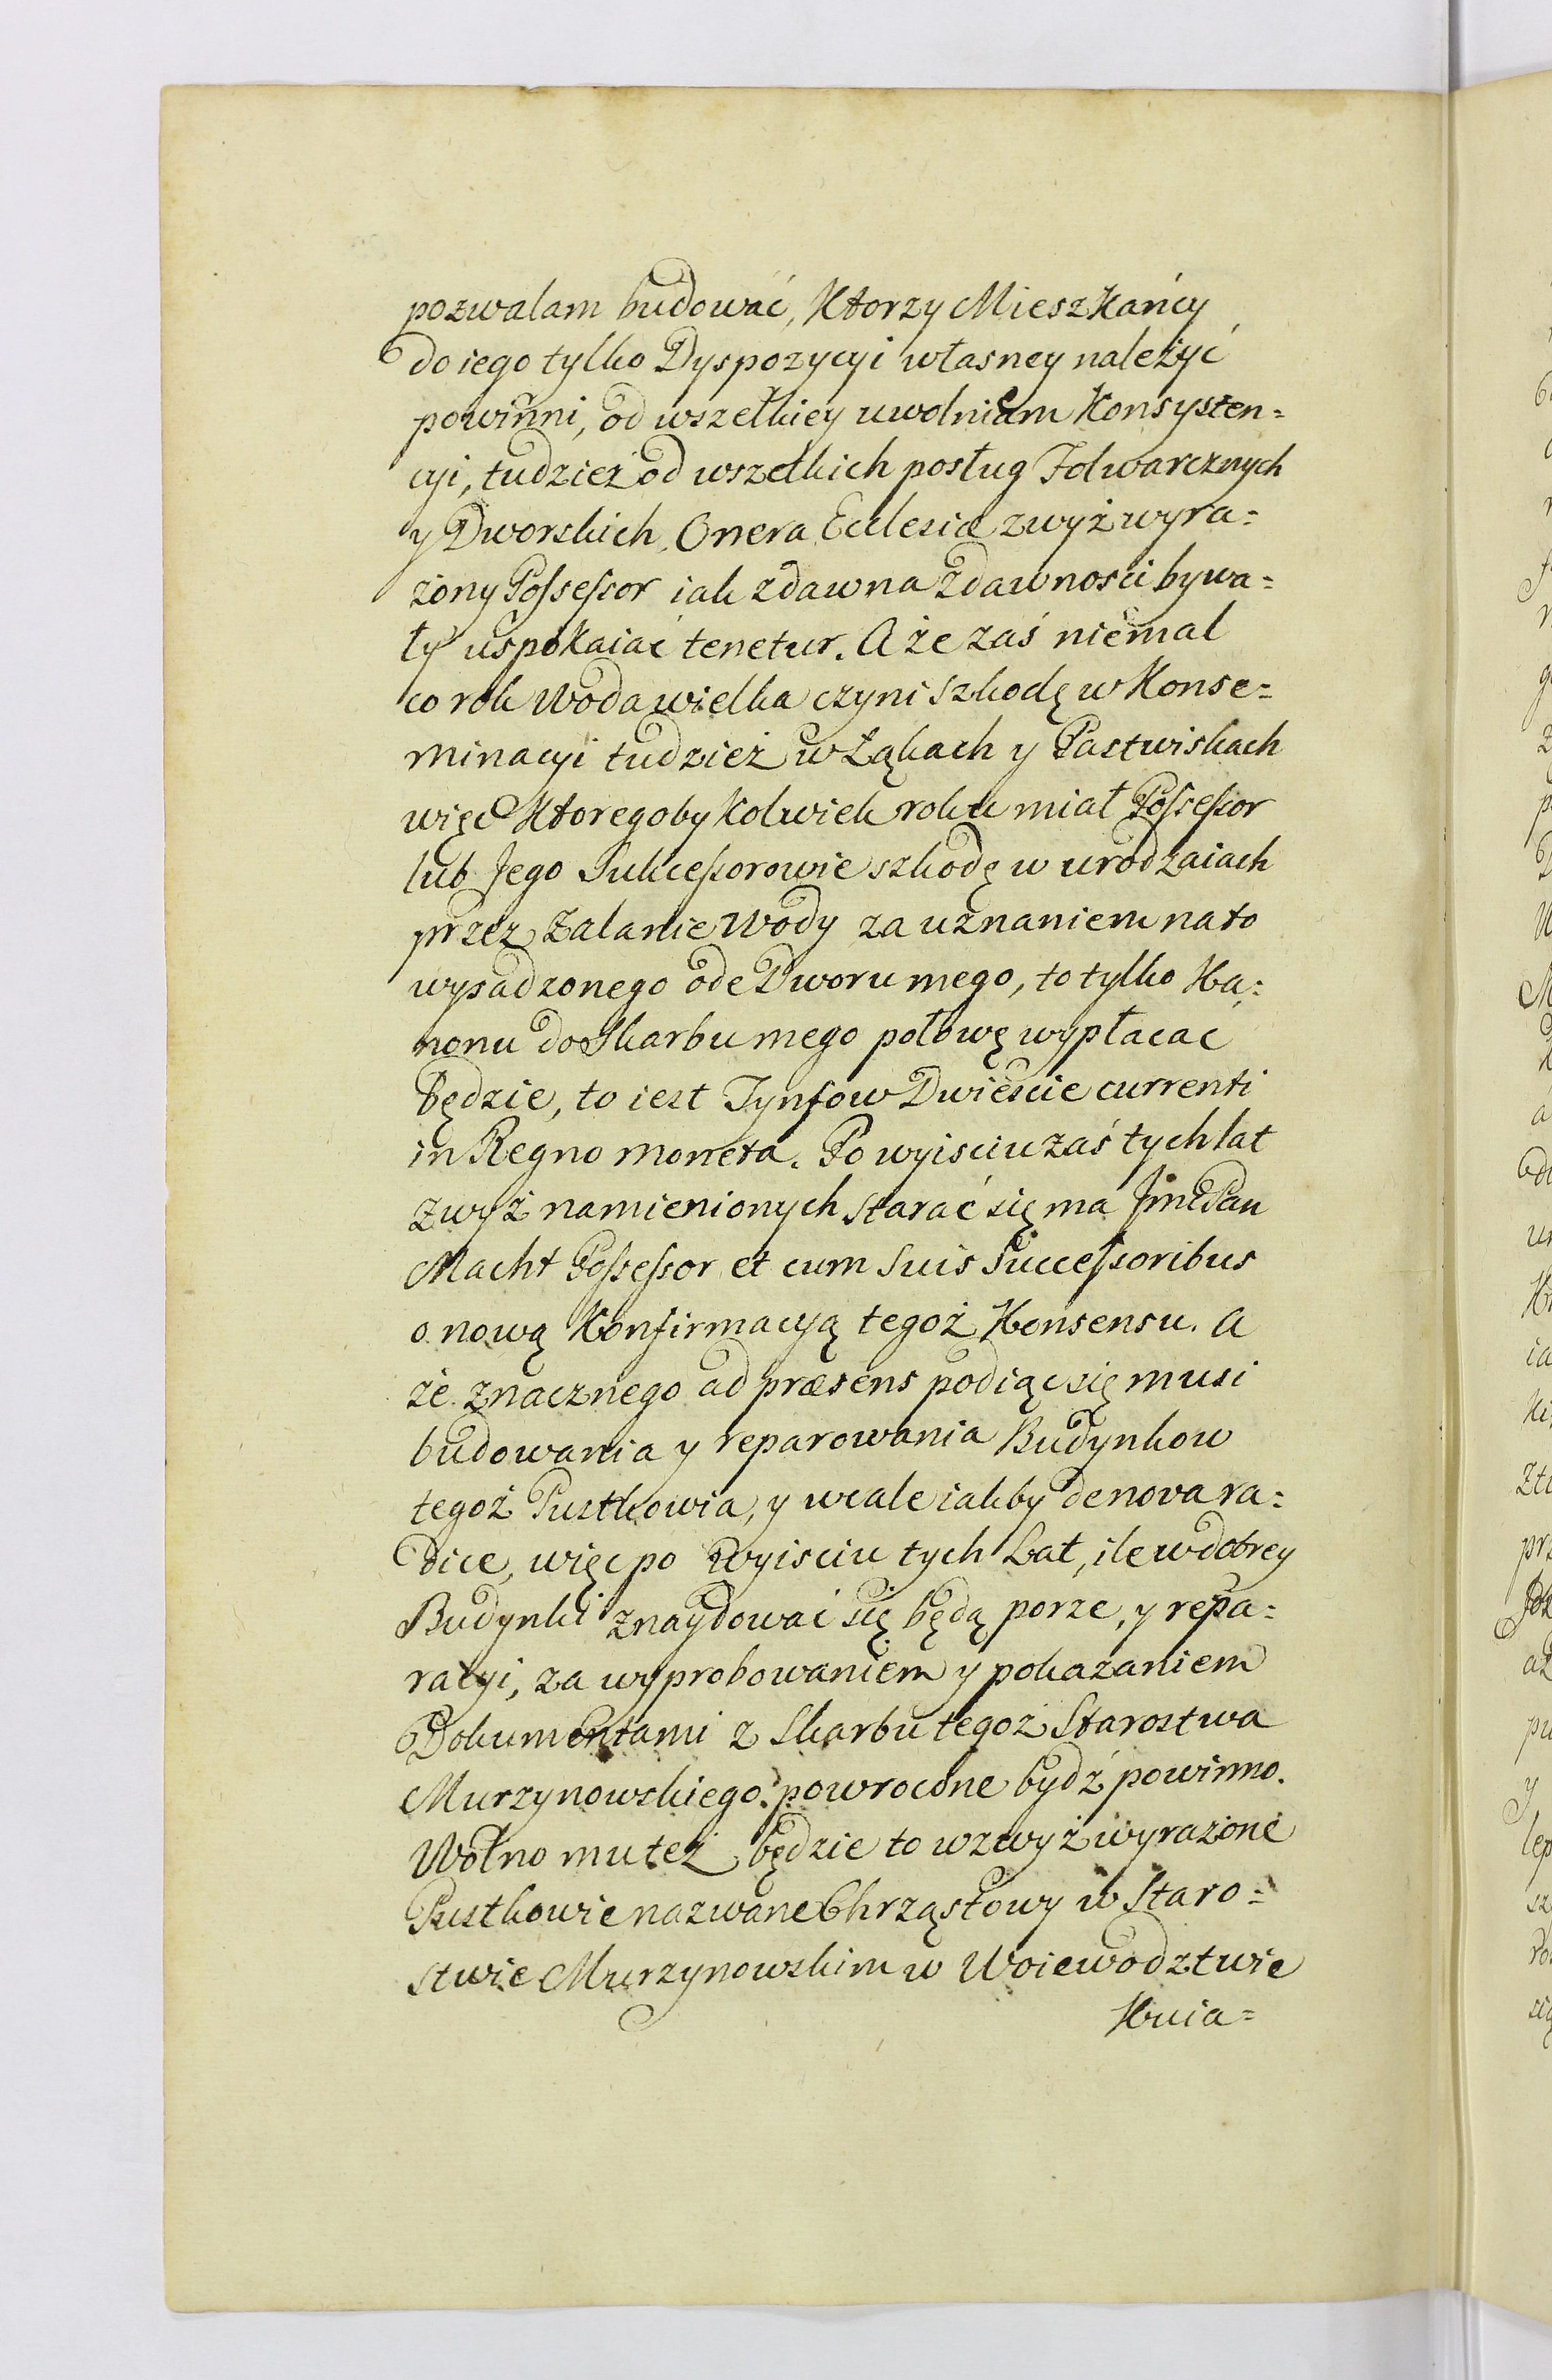 pozwalam budować, Ktorzy Mieszkańcy
do iego tylko Dyspozycyi własney należyć
powinni, od wszelkiey uwolniam Konsysten=
cyi, tudzież od wszelkich posług Folwarcznych
y Dworskich. Onera Ecclesiæ zwyż wyra=
żony Possessor iak zdawna zdawności bywa=
ły uspokaiać tenetur. A że zaś niemal
co rok Woda wielka czyni szkodę w Konse=
minacyi tudzież w Łąkach y Pastwiskach
więc Ktoregoby Kolwiek roku miał Possessor
lub Jego Sukcessorowie szkodę w urodzaiach
przez Zalanie Wody za uznaniem na to
wysadzonego ode Dworu mego, to tylko Ka=
nonu do Skarbu mego połowę wypłacać
będzie, to iest Tynfow Dwieście currenti
in Regno moneta. Po wyisciu zaś tych lat
zwyż namienionych starać się ma Jmć Pan
Macht Possessor et cum suis Successoribus
o nową Konfirmacyą tegoż Konsensu. A
że znacznego ad præsens podiąc się musi
budowania y reparowania Budynkow
tegoż Pustkowia, y wcale iakby de nova ra=
dice, więc po wyisciu tych Lat, ile w dobrey
Budynki znaydować się będą porze, y repa=
racyi, za wyprobowaniem y pokazaniem
Dokumentami z Skarbu tegoż Starostwa
Murzynowskiego powrocone bydź powinno.
Wolno mu też będzie to wzwyż wyrażone
Pustkowie nazwane Chrząstowy w Staro=
stwie Murzynowskim w Woiewodztwie
Kuia=